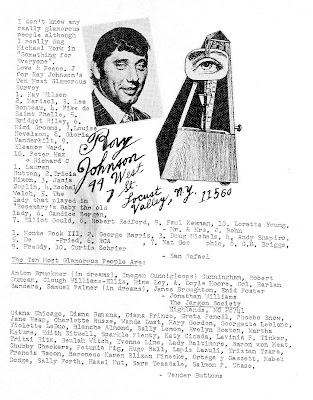 I don't know any
really glamorous
people although
I really dug
Michael York in
"Something for
Everyone".
Love & Peace. J
for Ray Johnson's
Ten Most Glamorous
Survey
1. Ray Wilson
2. Marisol, 3. Les
Bonteau, 4. Nike de
Saint Phalle, 5.
Bridget Riley, 6.
Mimi Grooms, 7. Louise
Nevelson, 8. Gloria
Vanderbilt, 9.
Eleanor Ward,
10. Peter Max
- Richard C
1. Lauren
Hutton, 2. Tricia
Nixon, 3. Janis
Joplin, 4. Rachel
Welch, 5. The
Lady that played in
"Rosemary's Baby" the old
lady, 6. Candice Bergen,
7. Elliot Gould, 8. Robert Redford, 9. Paul Newman, 10. Loretta Young.
- Mr. & Mrs. J. Bohn
1. Monte Rock III, 2. George Harris, 3. Doug Michels, 4. Andy Shapiro,
5. De Fried, 6. RCA 7. Nat Geo phic, 8. O.P. Briggs,
9. Freddy, 10. Curtis Schrier
- San Rafael
Ray
Johnson
44 West
7 St.
Locust
Valley, N.Y.
11560
The Ten Most Glamorous People Are:
Anton Bruckner (in dreams), Imogen Cunnig(oops) Cunningham, Robert
Duncan, Clough Williams-Ellis, Mina Loy, A. Doyle Moore, Col. Harlan
Sanders, Samuel Palmer (in dreams), James Broughton, Enid Foster
- Jonathan Williams
The Jargon Society
Highlands, NC 28741
Diana Chicago, Diana Banana, Diana Prince, Greta Pencil, Phoebe Snow,
Jane Heap, Charlotte Russe, Wanda Lust, Mary Gordon, Georgette Leblanc,
Violette LeDuc, Blanche Almond, Sally Lemon, Evelyn Beaton, Martha
Mature, Edith Sitwell, Sparkle Plenty, Katy Cicada, Lavinia F. Tinker,
Tritzi Ritz, Beulah Witch, Yvonne Lime, Lady Baltimore, Baron von West,
Chubby Checkers, Petunia Pig, Hugo Ball, Lapis Lazuli, Tristan Tzara,
Francis Bacon, Baroness Karen Blixen Finecke, Ortega y Gassett, Mabel
Dodge, Sally Forth, Hazel Nut, Sara Teasdale, Salmon P. Chase.
- Tender Buttons